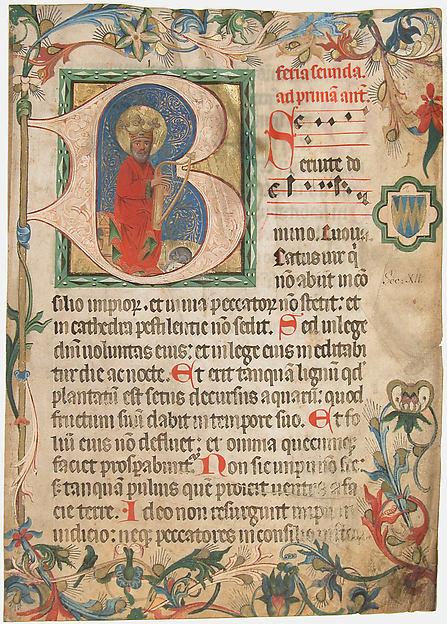 feria secunda.
ad primam ant.
Seruite do
mino. Euoua
B Eatus uir q
nō abiit in cō
silio impior. et in uia peccator nō stetit: et
in cathedra pestilentie nō sedit. Sed in lege
dn̄i uoluntas eius: et in lege eius meditabi
tur die ac nocte. Et erit tanquā lignū qd
plantatū est secus decursus aquarū: quod
fructum suū dabit in tempore suo. Et fo
liū eius nō defluet: et omnia quecumq
faciet prosperabunt. Non sic impii nō sic:
s; tanquā puluis quē proicit uentus a fa
cie terre. Ideo non resurgunt impii in
iudicio: neq peccatores in consilio
Sec. XII.